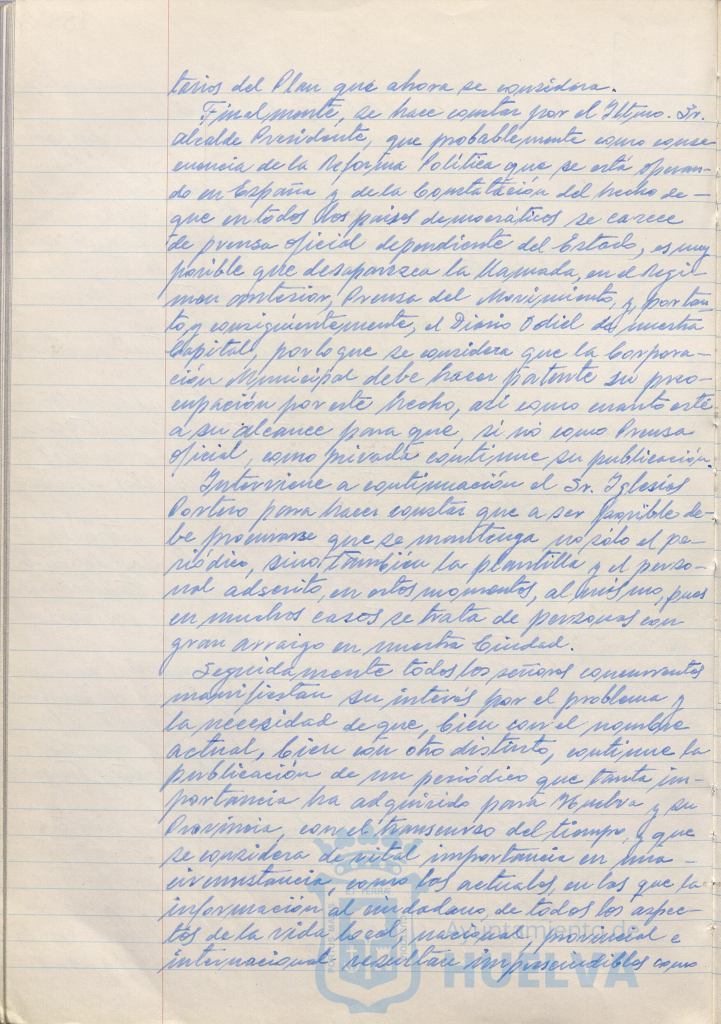 tarios del Plan que ahora se considera.
Finalmente, se hace constar por el Iltmo. Sr.
Alcalde Presidente, que probablemente como conse
cuencia de la Reforma Política que se está operan-
do en España y de la Constatación del hecho de-
que en todos los paises democráticos se carece
de prensa oficial dependiente del Estado, es muy
posible que desaparezca la llamada, en el Regi-
men anterior, Prensa del Movimiento, y, por tan-
to, y consiguientemente, el Diario Odiel de nuestra
Capital, por lo que se considera que la Corpora-
ción Municipal debe hacer patente su preo-
cupación por este hecho, así como cuanto esté
a su alcance para que, si nó como Prensa
oficial, como privada continue su publicación.
Interviene a continuación el Sr. Iglesias
Portero para hacer constar que a ser posible de-
be procurarse que se mantenga no sólo el pe-
riódico, sino también la plantilla y el perso-
nal adscrito, en estos momentos, al mismo, pues
en muchos casos se trata de personas con
gran arraigo en nuestra Ciudad.
Seguidamente todos los señores concurrentes
manifiestan su interés por el problema y
la necesidad de que, bien con el nombre
actual, bien con otro distinto, continue la
publicación de un periódico que tanta im-
portancia ha adquirido para Huelva y su
Provincia, con el transcurso del tiempo, y que
se considera de vital importancia en una-
circunstancia, como las actuales, en las que la
información al ciudadano, de todos los aspec-
tos de la vida local, nacional, provincial e
internacional resultan imprescindibles como
Ayuntamiento de
HUELVA